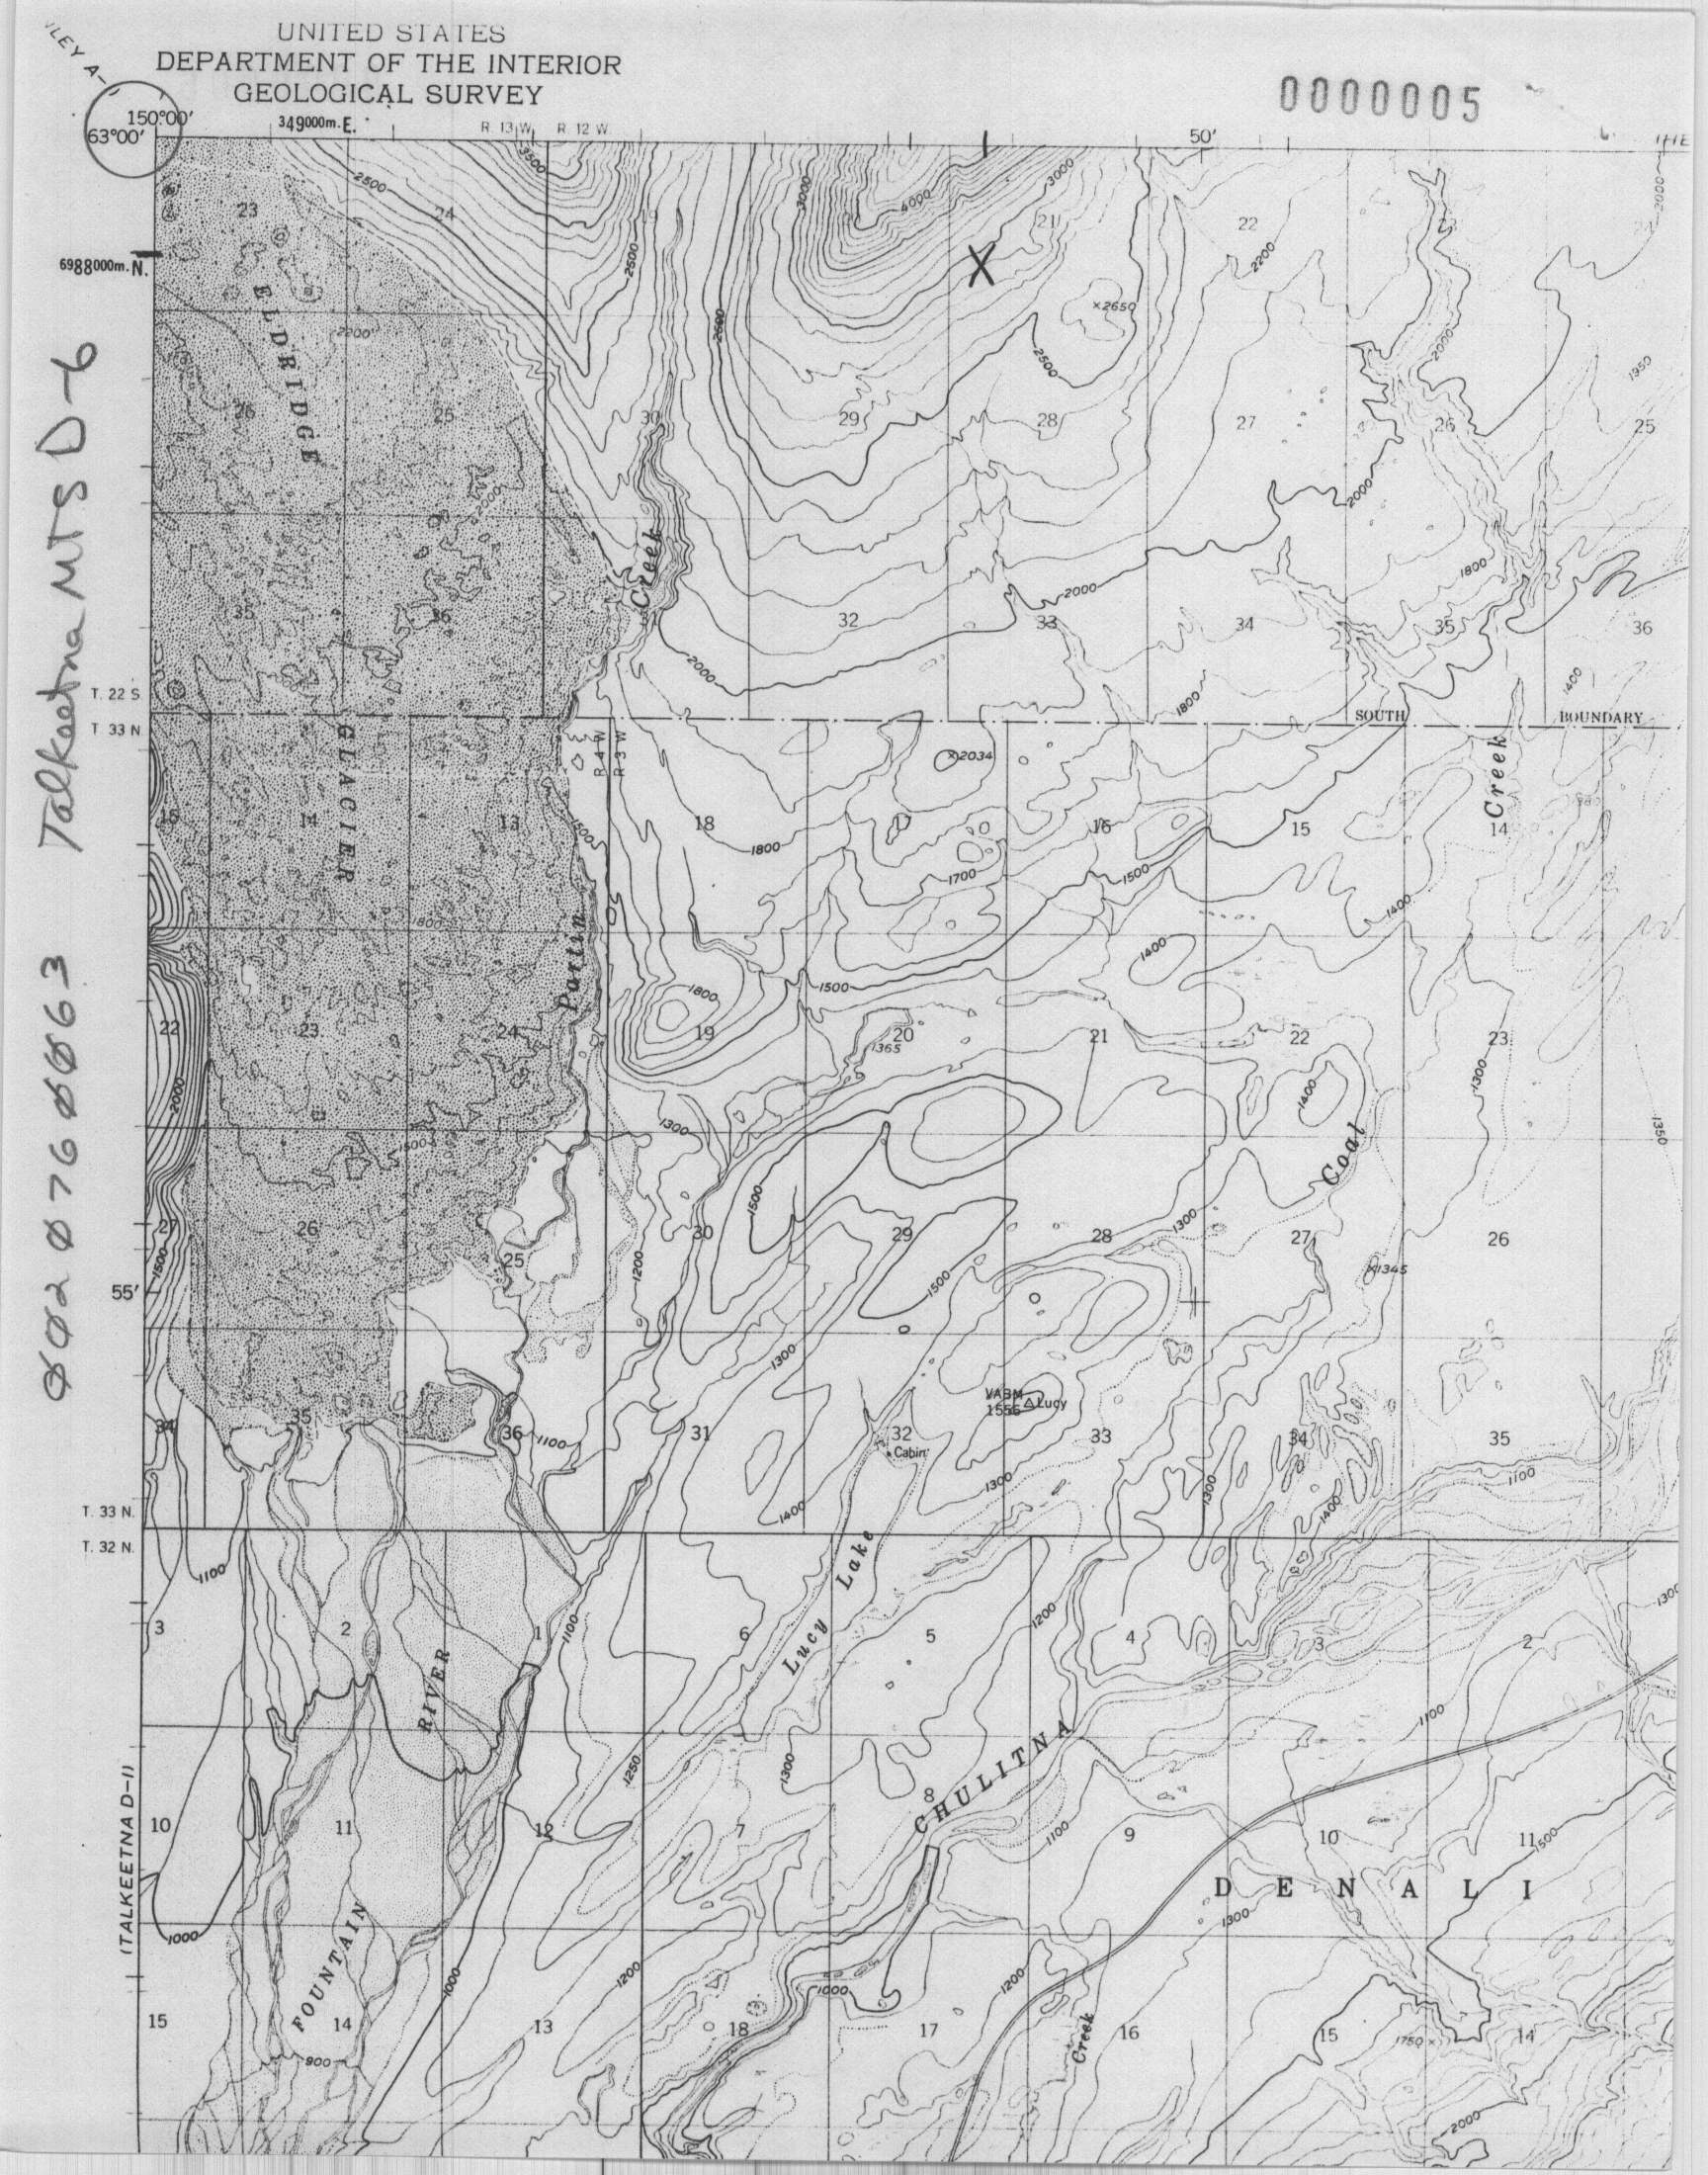 UNITED STATES
DEPARTMENT OF THE INTERIOR
GEOLOGICAL SURVEY
0000005
150°00'
63°00'
349000m.E.
R. 13 W.
R. 12 W.
50'
6988000m.N.
Talkeetna MTS D-6
002 076 0063
3500
2500
3000
4000
3000
2000
23
24
21
22
2200
X
2500
×2650
2600
2500
ELDRIDGE
2200
2000
1950
26
25
30
29
28
27
26
25
2000
2000
Creek
1800
35
36
32
33
34
35
36
2000
2000
1800
1400
T. 22 S
T. 33 N
SOUTH
BOUNDARY
R 4 W
R 3 W
×2034
GLACIER
Creek
15
14
13
18
17
16
15
14
1500
1800
1700
1500
1400
1400
Partin
1800
1500
22
23
24
19
20
21
22
23
1365
1300
2000
1400
1300
1350
Coal
1500
27
26
25
30
29
28
27
26
1300
1200
1500
1500
×1345
55'
1300
VABM
1556 △ Lucy
34
35
36
31
32
33
34
35
Cabin
1100
1300
1300
1400
1400
1100
T. 33 N.
T. 32 N.
1100
Lucy Lake
3
2
1
6
5
4
3
2
1100
1200
1300
RIVER
1100
1250
1300
CHULITNA
(TALKEETNA D-1)
10
11
12
7
8
9
10
11
1100
1500
DENALI
1000
1300
FOUNTAIN
1000
1200
1000
1200
15
14
13
18
17
16
15
14
Creek
1750 ×
900
2000